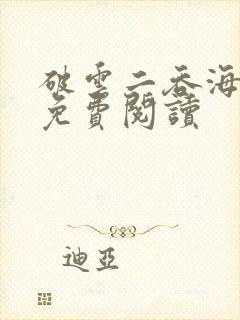 破雲二吞海
免費閱讀
迪亞